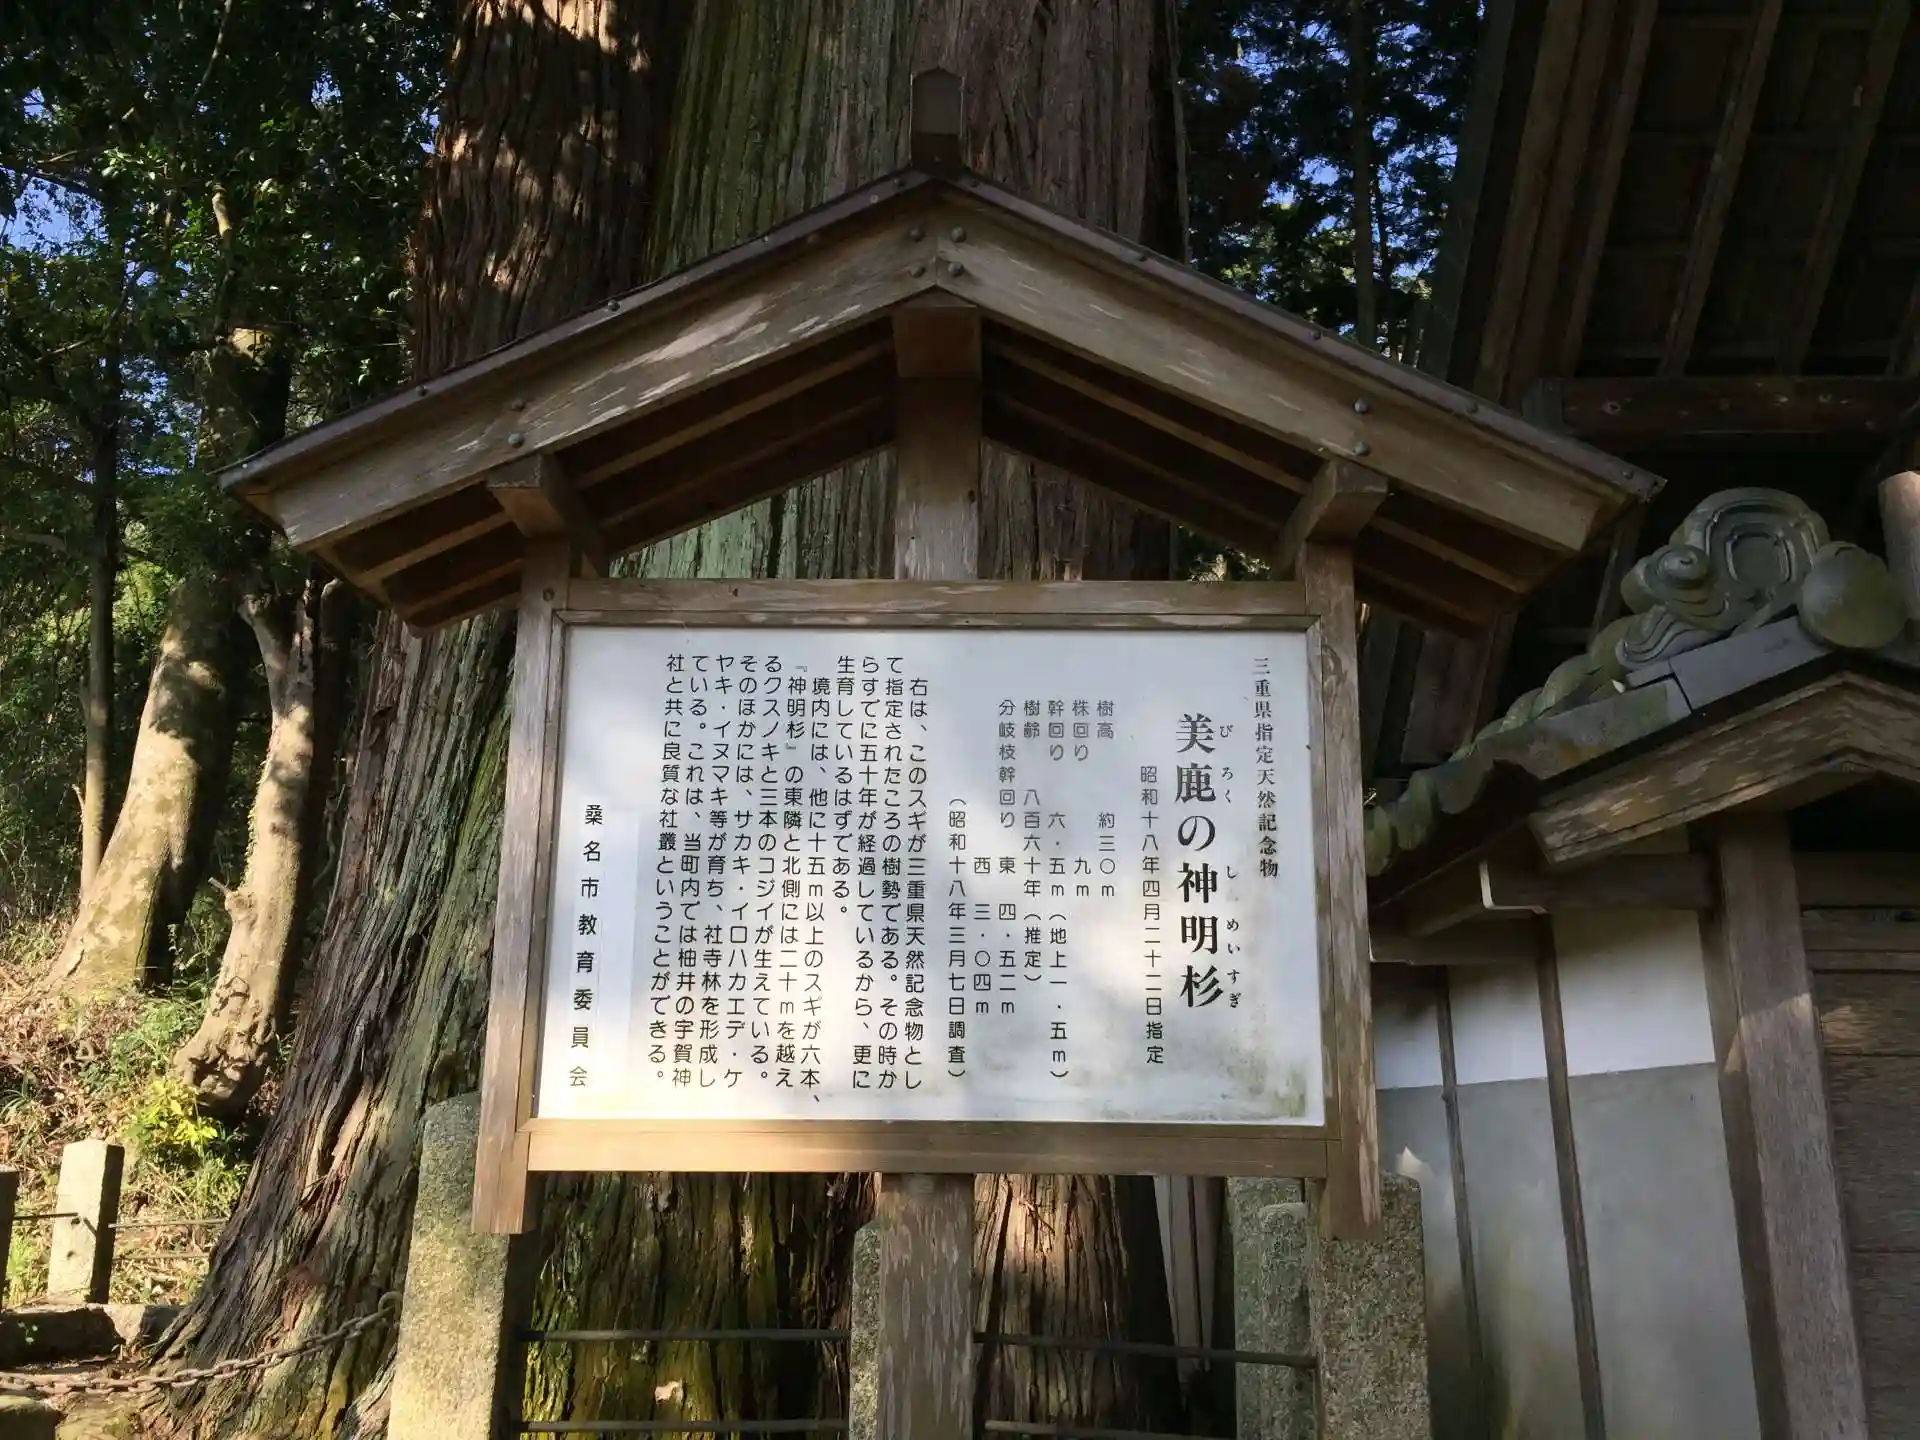 三重県指定天然記念物
美鹿の神明杉
びろく しめいすぎ
昭和十八年四月二十二日指定
樹高 約三〇m
株回り 九m
幹回り 六・五m（地上一・五m）
樹齢 八百六十年（推定）
分岐枝幹回り 東 四・五二m
西 三・〇四m
（昭和十八年三月七日調査）
右は、このスギが三重県天然記念物とし
て指定されたころの樹勢である。その時か
らすでに五十年が経過しているから、更に
生育しているはずである。
境内には、他に十五m以上のスギが六本、
『神明杉』の東隣と北側には二十mを越え
るクスノキと三本のコジイが生えている。
そのほかには、サカキ・イロハカエデ・ケ
ヤキ・イヌマキ等が育ち、社寺林を形成し
ている。これは、当町内では柚井の宇賀神
社と共に良質な社叢ということができる。
桑名市教育委員会